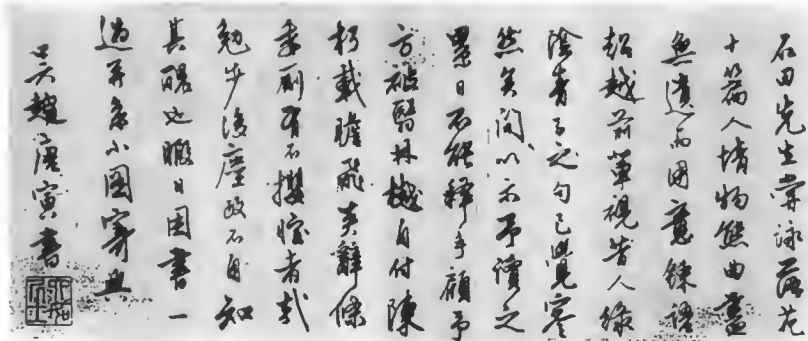 石田先生嘗詠落花
十篇人情物態曲盡
無遺而用意鍊語
超越前輩視昔人綠
陰青子之句已覺寥
然矣間以示予讀之
累日不能釋手顧予
方翳林樾自付陳
朽載瞻飛英辭條
委廁有不攖懷者哉
勉步後塵政不自知
其醜也暇日因書一
過并系小圖寄興
吳趨唐寅書
六如居士